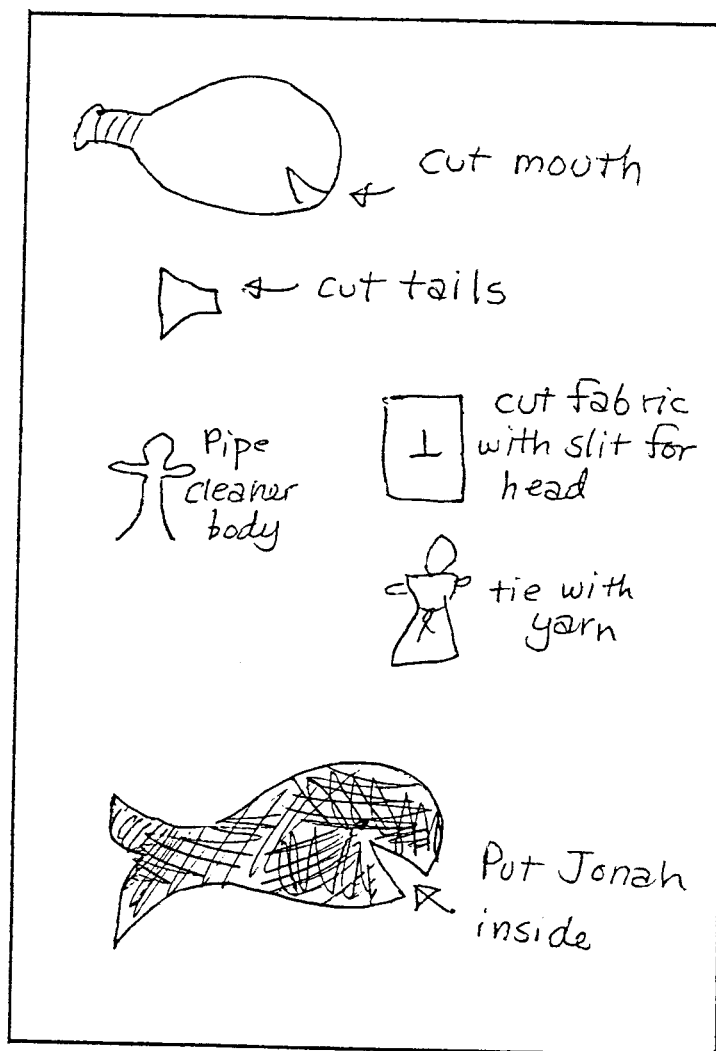 cut mouth
cut tails
Pipe
cleaner
body
cut fabric
with slit for
head
tie with
yarn
Put Jonah
inside